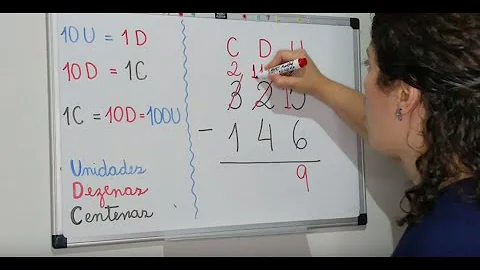 10U = 1D
10D = 1C
1C = 10D = 100U
Unidades
Dezenas
Centenas
C D U
2 11
3 2 15
- 1 4 6
9